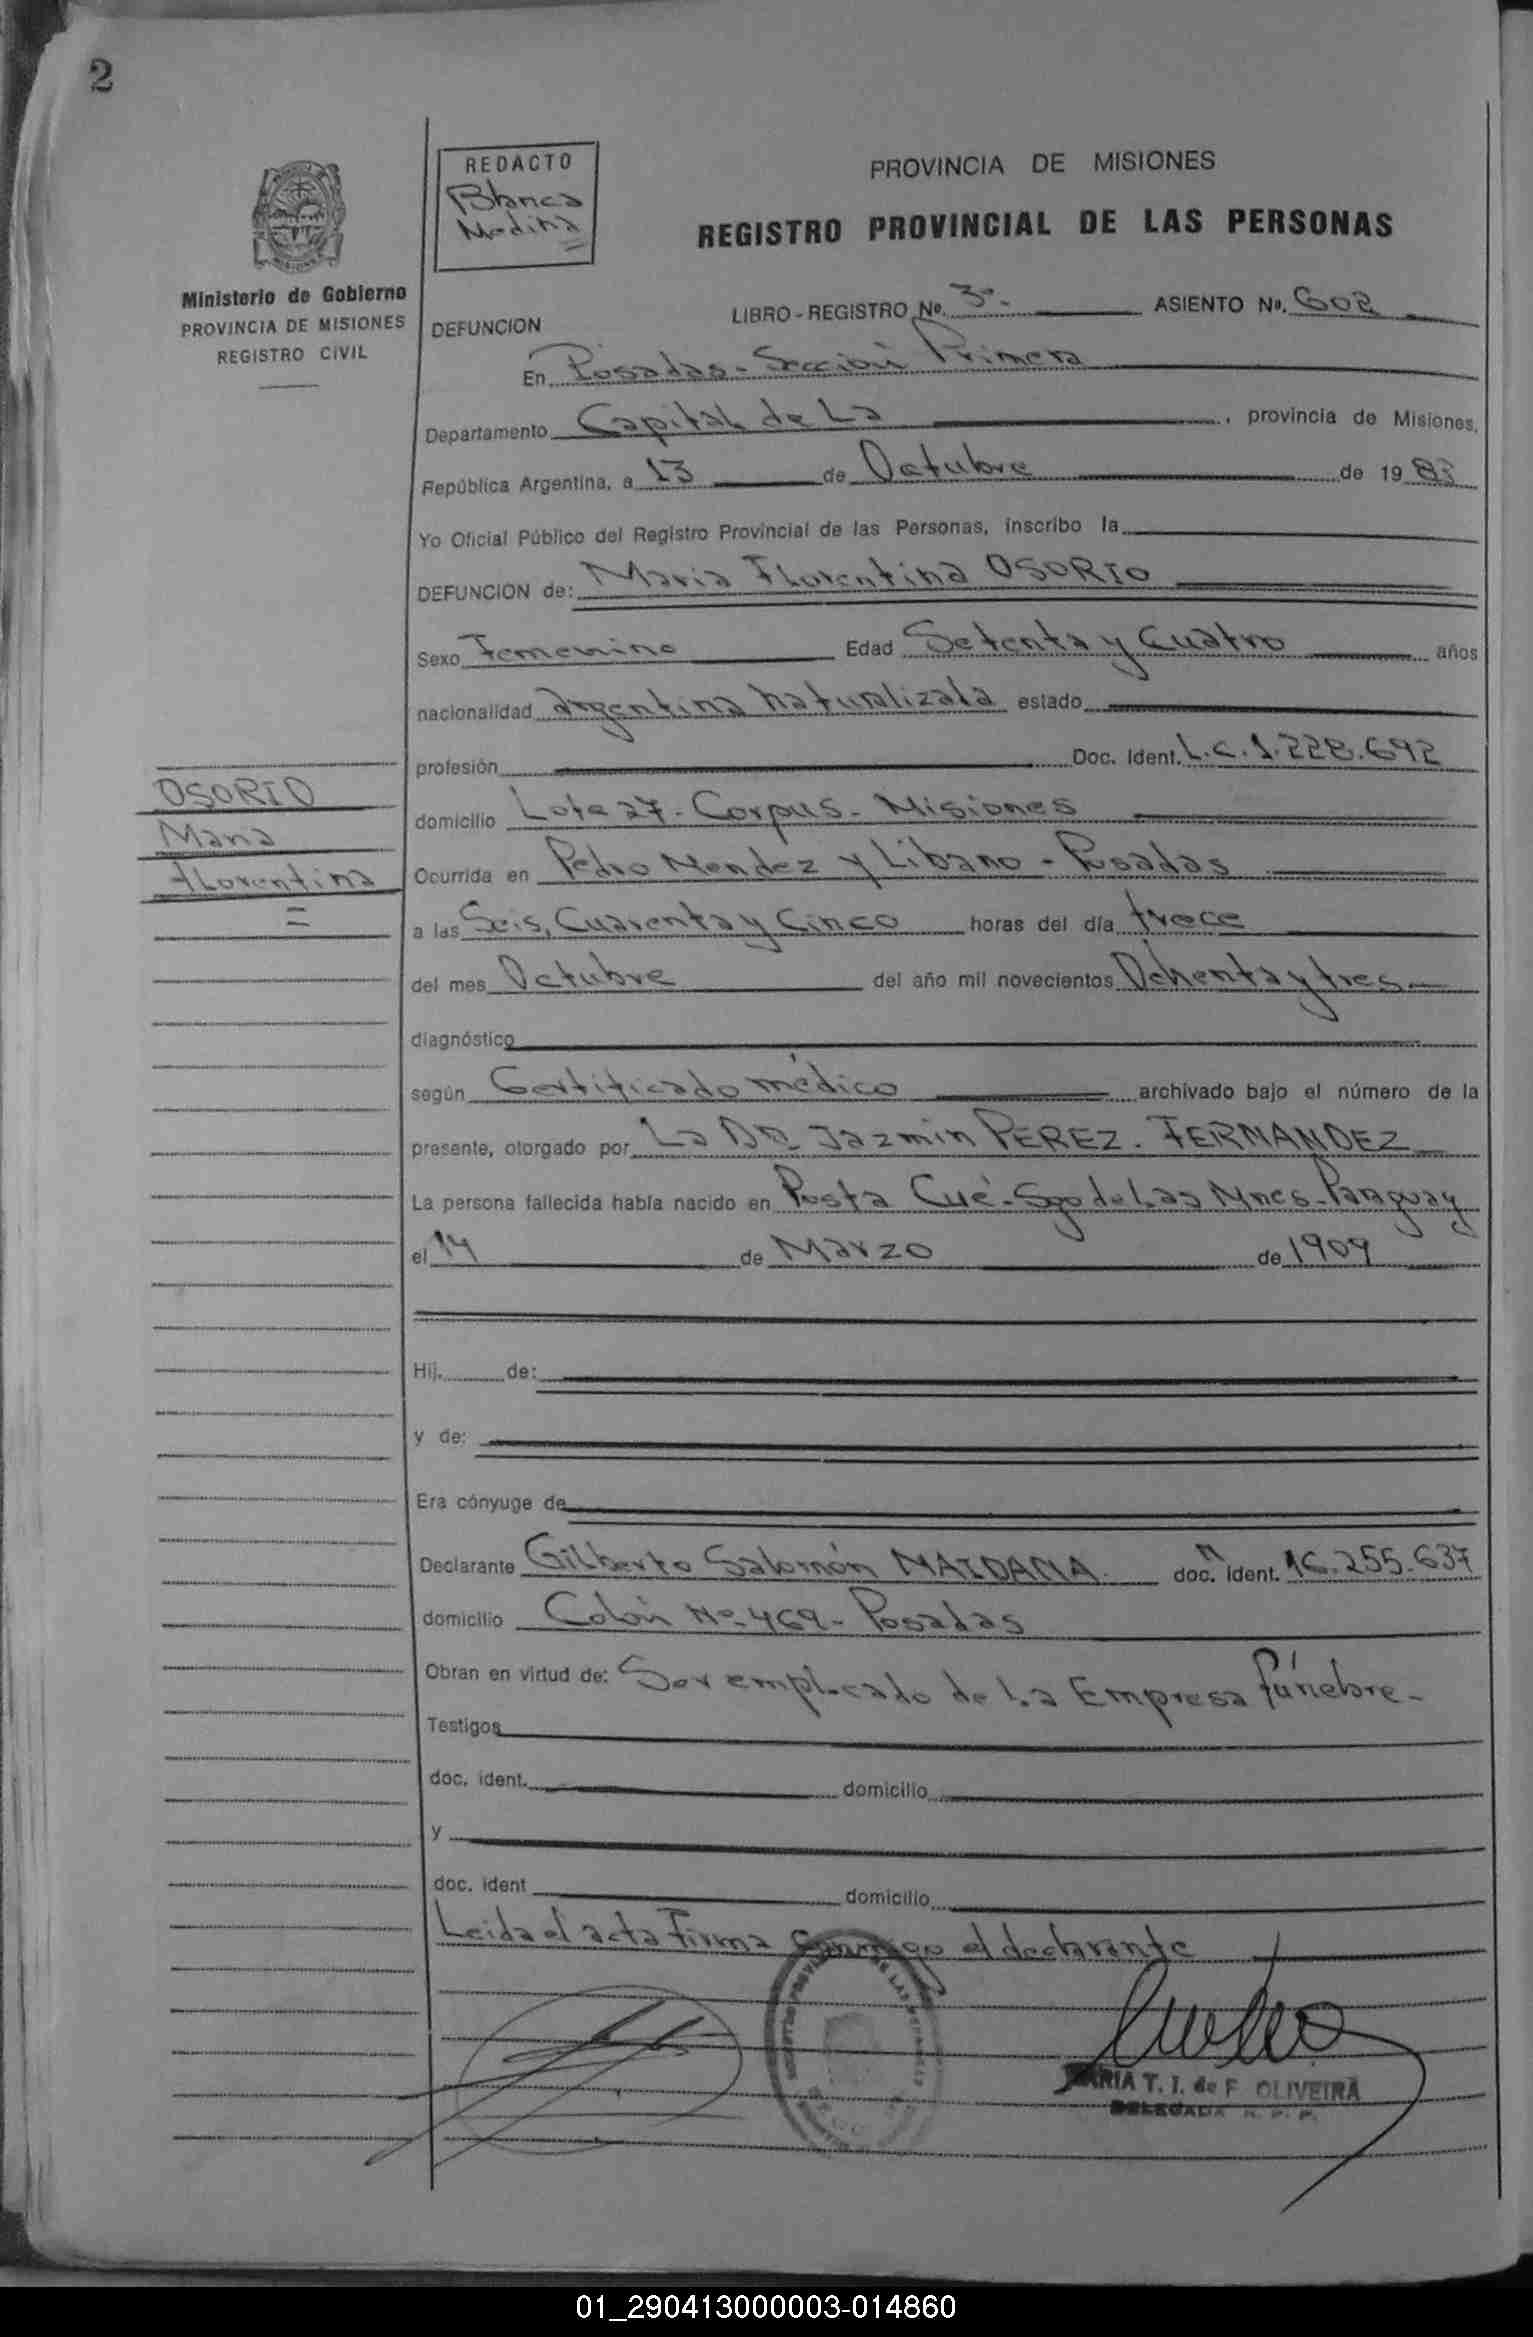 2
REDACTO
Blanca
Medina
PROVINCIA DE MISIONES
REGISTRO PROVINCIAL DE LAS PERSONAS
Ministerio de Gobierno
PROVINCIA DE MISIONES
REGISTRO CIVIL
LIBRO-REGISTRO No. 3º.- ASIENTO No. 602
DEFUNCION
En Posadas - Sección Primera
Departamento Capital de La , provincia de Misiones,
República Argentina, a 13 de Octubre de 1983
Yo Oficial Público del Registro Provincial de las Personas, inscribo la
DEFUNCION de: Maria Florentina OSORIO
Sexo Femenino Edad Setenta y Cuatro años
nacionalidad argentina naturalizada estado
profesión Doc. Ident. L.C. 1.228.692
OSORIO
Maria
Florentina
=
domicilio Lote 27- Corpus - Misiones
Ocurrida en Pedro Mendez y Libano - Posadas
a las Seis, Cuarenta y Cinco horas del día trece
del mes Octubre del año mil novecientos Ochenta y tres
diagnóstico
según Certificado médico archivado bajo el número de la
presente, otorgado por La Dra. Jazmin PEREZ. FERNANDEZ
La persona fallecida había nacido en Posta Cué - Sgo de Las Mnes - Paraguay
el 14 de Marzo de 1909
Hij. de:
y de:
Era cónyuge de
Declarante Gilberto Salomón MAIDANA doc. ident. 16.255.637
domicilio Colón Nº 469 - Posadas
Obran en virtud de: Ser empleado de La Empresa fúnebre -
Testigos
doc. ident. domicilio
y
doc. ident domicilio
Leida el acta Firma Conmigo el declarante
MARIA T. I. de F. OLIVEIRA
DELEGADA R. P. P.
01_290413000003-014860